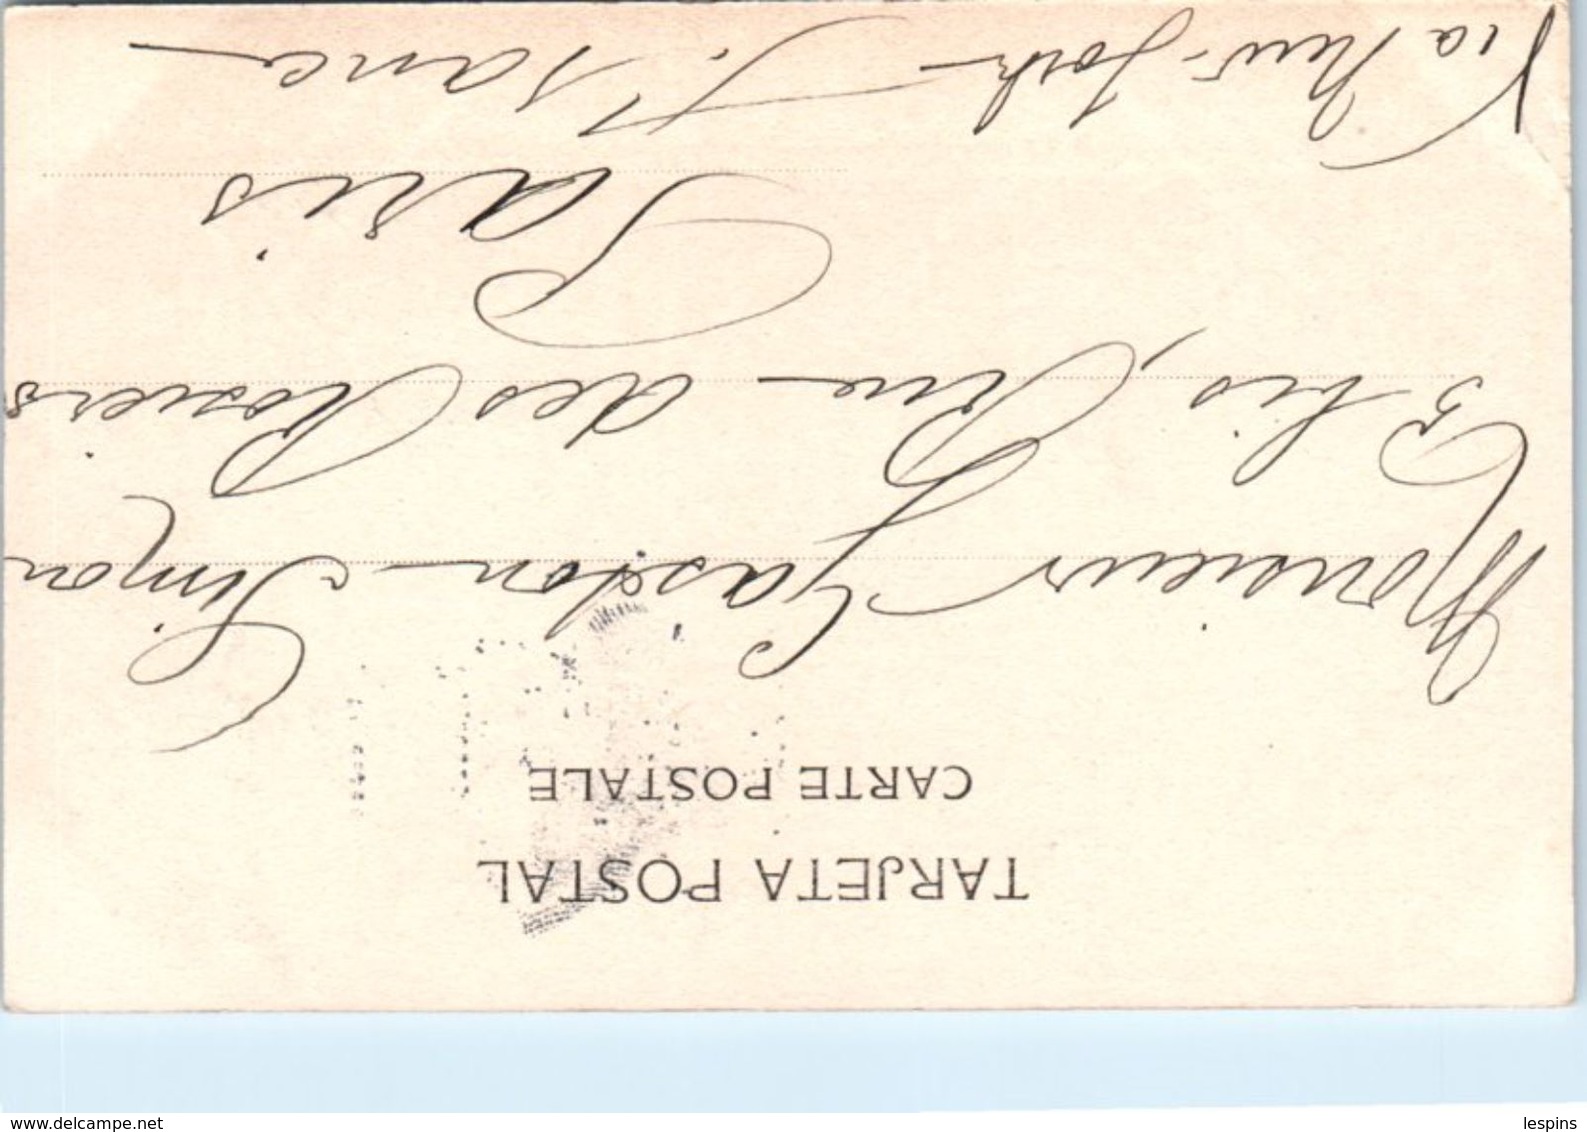 TARJETA POSTAL
CARTE POSTALE
Monsieur Gaston Simon
3 bis, Rue des Rosiers
Paris
Via New-York France
www.delcampe.net
lespins